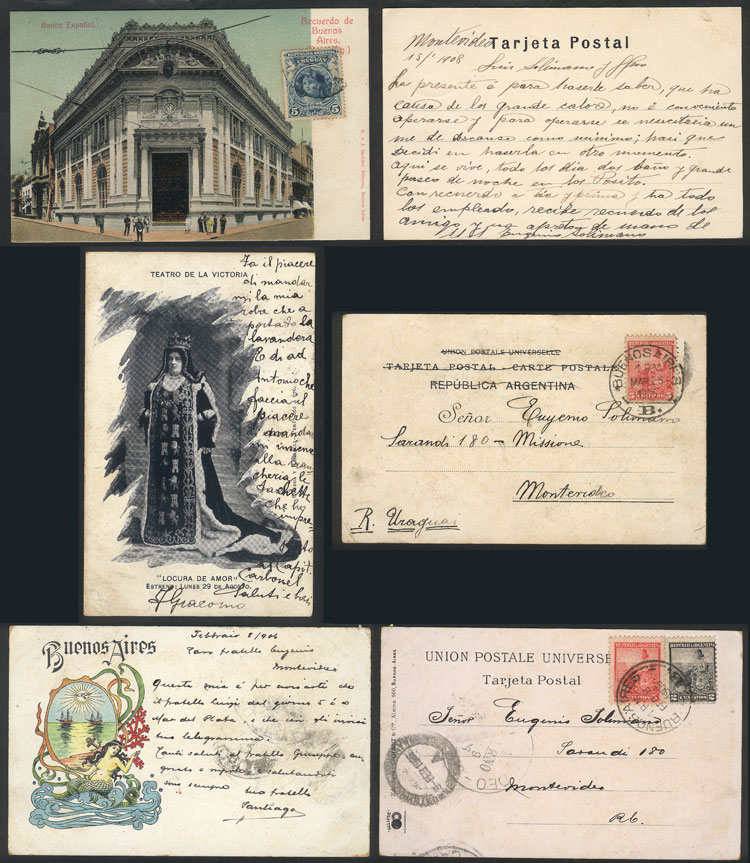 Banco Español.
Recuerdo de
Buenos
Aires.
URUGUAY
5 5
Tarjeta Postal
Montevideo
15/1 1908
Luis Solimano y
ha presente é para hacerte saber, que ha
causa de los grande calore, no é conveniente
operarse y para operarse se necesitaria un
me de descanso como minimo; hasi que
decidi en hacerla en otro momento.
Aqui se vive, todo los dia dos baño y grande
paseo de noche en los Posito.
con recuerdo a tia y prima y ha todo
los empleado, recibe recuerdo de los
amigo y un apreton de mano de
S.S.S. Eugenio Solimano
TEATRO DE LA VICTORIA
Fa il piacere
di mandar
mi la mia
roba che a
portato la
lavandera
E di ad
Antonio che
faccia il
piacere
mandar
mi
alla
le
che ho
al Capit.
Carbonel
Saluti e baci
"LOCURA DE AMOR"
ESTRENO: LUNES 29 DE AGOSTO.
Giacomo
UNION POSTALE UNIVERSELLE
TARJETA POSTAL - CARTE POSTALE
REPÚBLICA ARGENTINA
BUENOS AIRES
MAR 25
B.
5 CENTAVOS 5
Señor Eugenio Solimano
Sarandi 180 - Missione
Montevideo
R. Uraguay
Buenos Aires
Febbraio 8/906
Caro fratello Eugenio
Montevideo
Questa mia è per avvisarte che
il fratello Luigi del giorno 5 è a
Mar del Plata, e che
telegramma.
Tanti saluti al fratello Giuseppe,
e salutandoti
sono sempre tuo fratello
Santiago
UNION POSTALE UNIVERSE
Tarjeta Postal
REPUBLICA ARGENTINA
REPUBLICA ARGENTINA
5 CENTAVOS 5
2 CENTAVOS 2
BUENOS AIRES
Señor Eugenio Solimano
Sarandi 180
Montevideo
R.O.